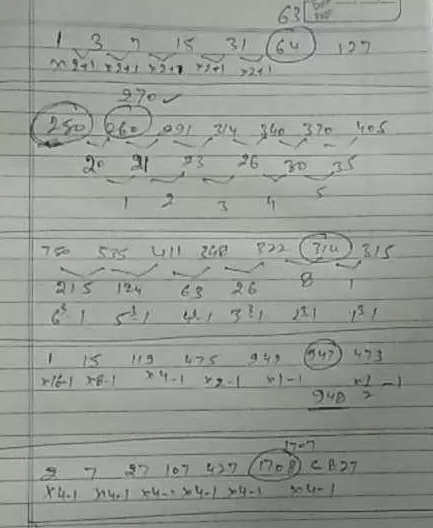 63
1 3 7 15 31 64 127
×2+1 ×2+1 ×2+1 ×2+1 ×2+1
270 ✓
250 260 291 314 340 370 405
20 21 23 26 30 35
1 2 3 4 5
750 535 411 348 322 314 315
215 124 63 26 8 1
6³-1 5³-1 4³-1 3³-1 2³-1 1³-1
1 15 119 475 949 947 473
×16-1 ×8-1 ×4-1 ×2-1 ×1-1
948
1707
2 7 27 107 427 1708 6827
×4-1 ×4-1 ×4-1 ×4-1 ×4-1 ×4-1